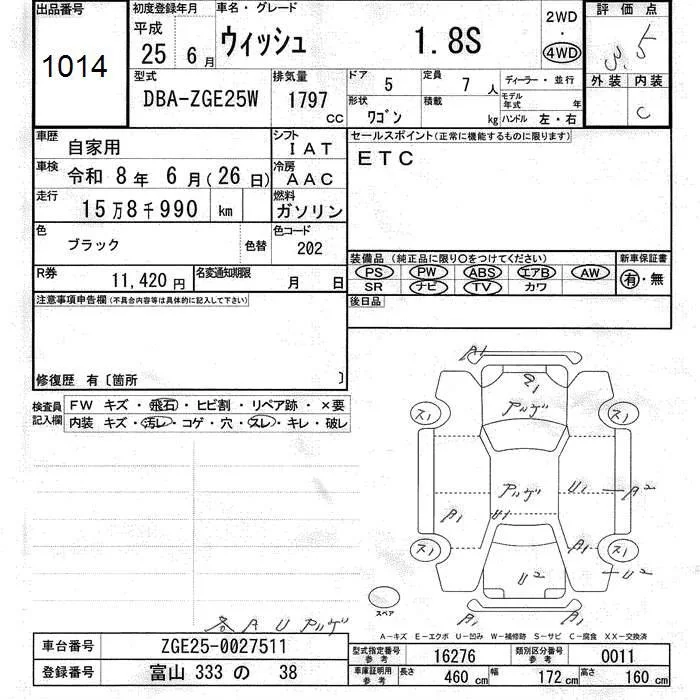 出品番号
1014
初度登録年月
平成
25 6 月
車名・グレード
ウィッシュ 1.8S
2WD
・
4WD
評価点
3.5
外装 内装
C
型式
DBA-ZGE25W
排気量
1797 CC
ドア 5
定員 7 人
ディーラー・並行
形状 ワゴン
積載 kg
モデル年式 年
ハンドル 左・右
車歴 自家用
シフト IAT
車検 令和 8 年 6 月(26 日)
冷房 AAC
走行 15 万 8 千 990 km
燃料 ガソリン
色 ブラック 色替
色コード 202
R券 11,420 円
名変通知期限 月 日
セールスポイント(正常に機能するものに限ります)
ETC
装備品(純正品に限り○をつけてください)
PS PW ABS エアB AW
SR ナビ TV カワ
新車保証書
有・無
後日品
注意事項申告欄(不具合内容等は具体的に記入して下さい)
修復歴 有〔箇所 〕
検査員記入欄
FW キズ・飛石・ヒビ割・リペア跡・×要
内装 キズ・汚レ・コゲ・穴・スレ・キレ・破レ
A1
ス1 アルゲ ス1
アルゲ U1 A2
A1 U1
ス1 A1 ス1
U2 U2
スペア
A1 A1
各 A U アルゲ
A-キズ E-エクボ U-凹み W-補修跡 S-サビ C-腐食 XX-交換済
車台番号 ZGE25-0027511
登録番号 富山 333 の 38
型式指定番号参考 16276
類別区分番号参考 0011
車庫証明用参考 長さ 460 cm 幅 172 cm 高さ 160 cm